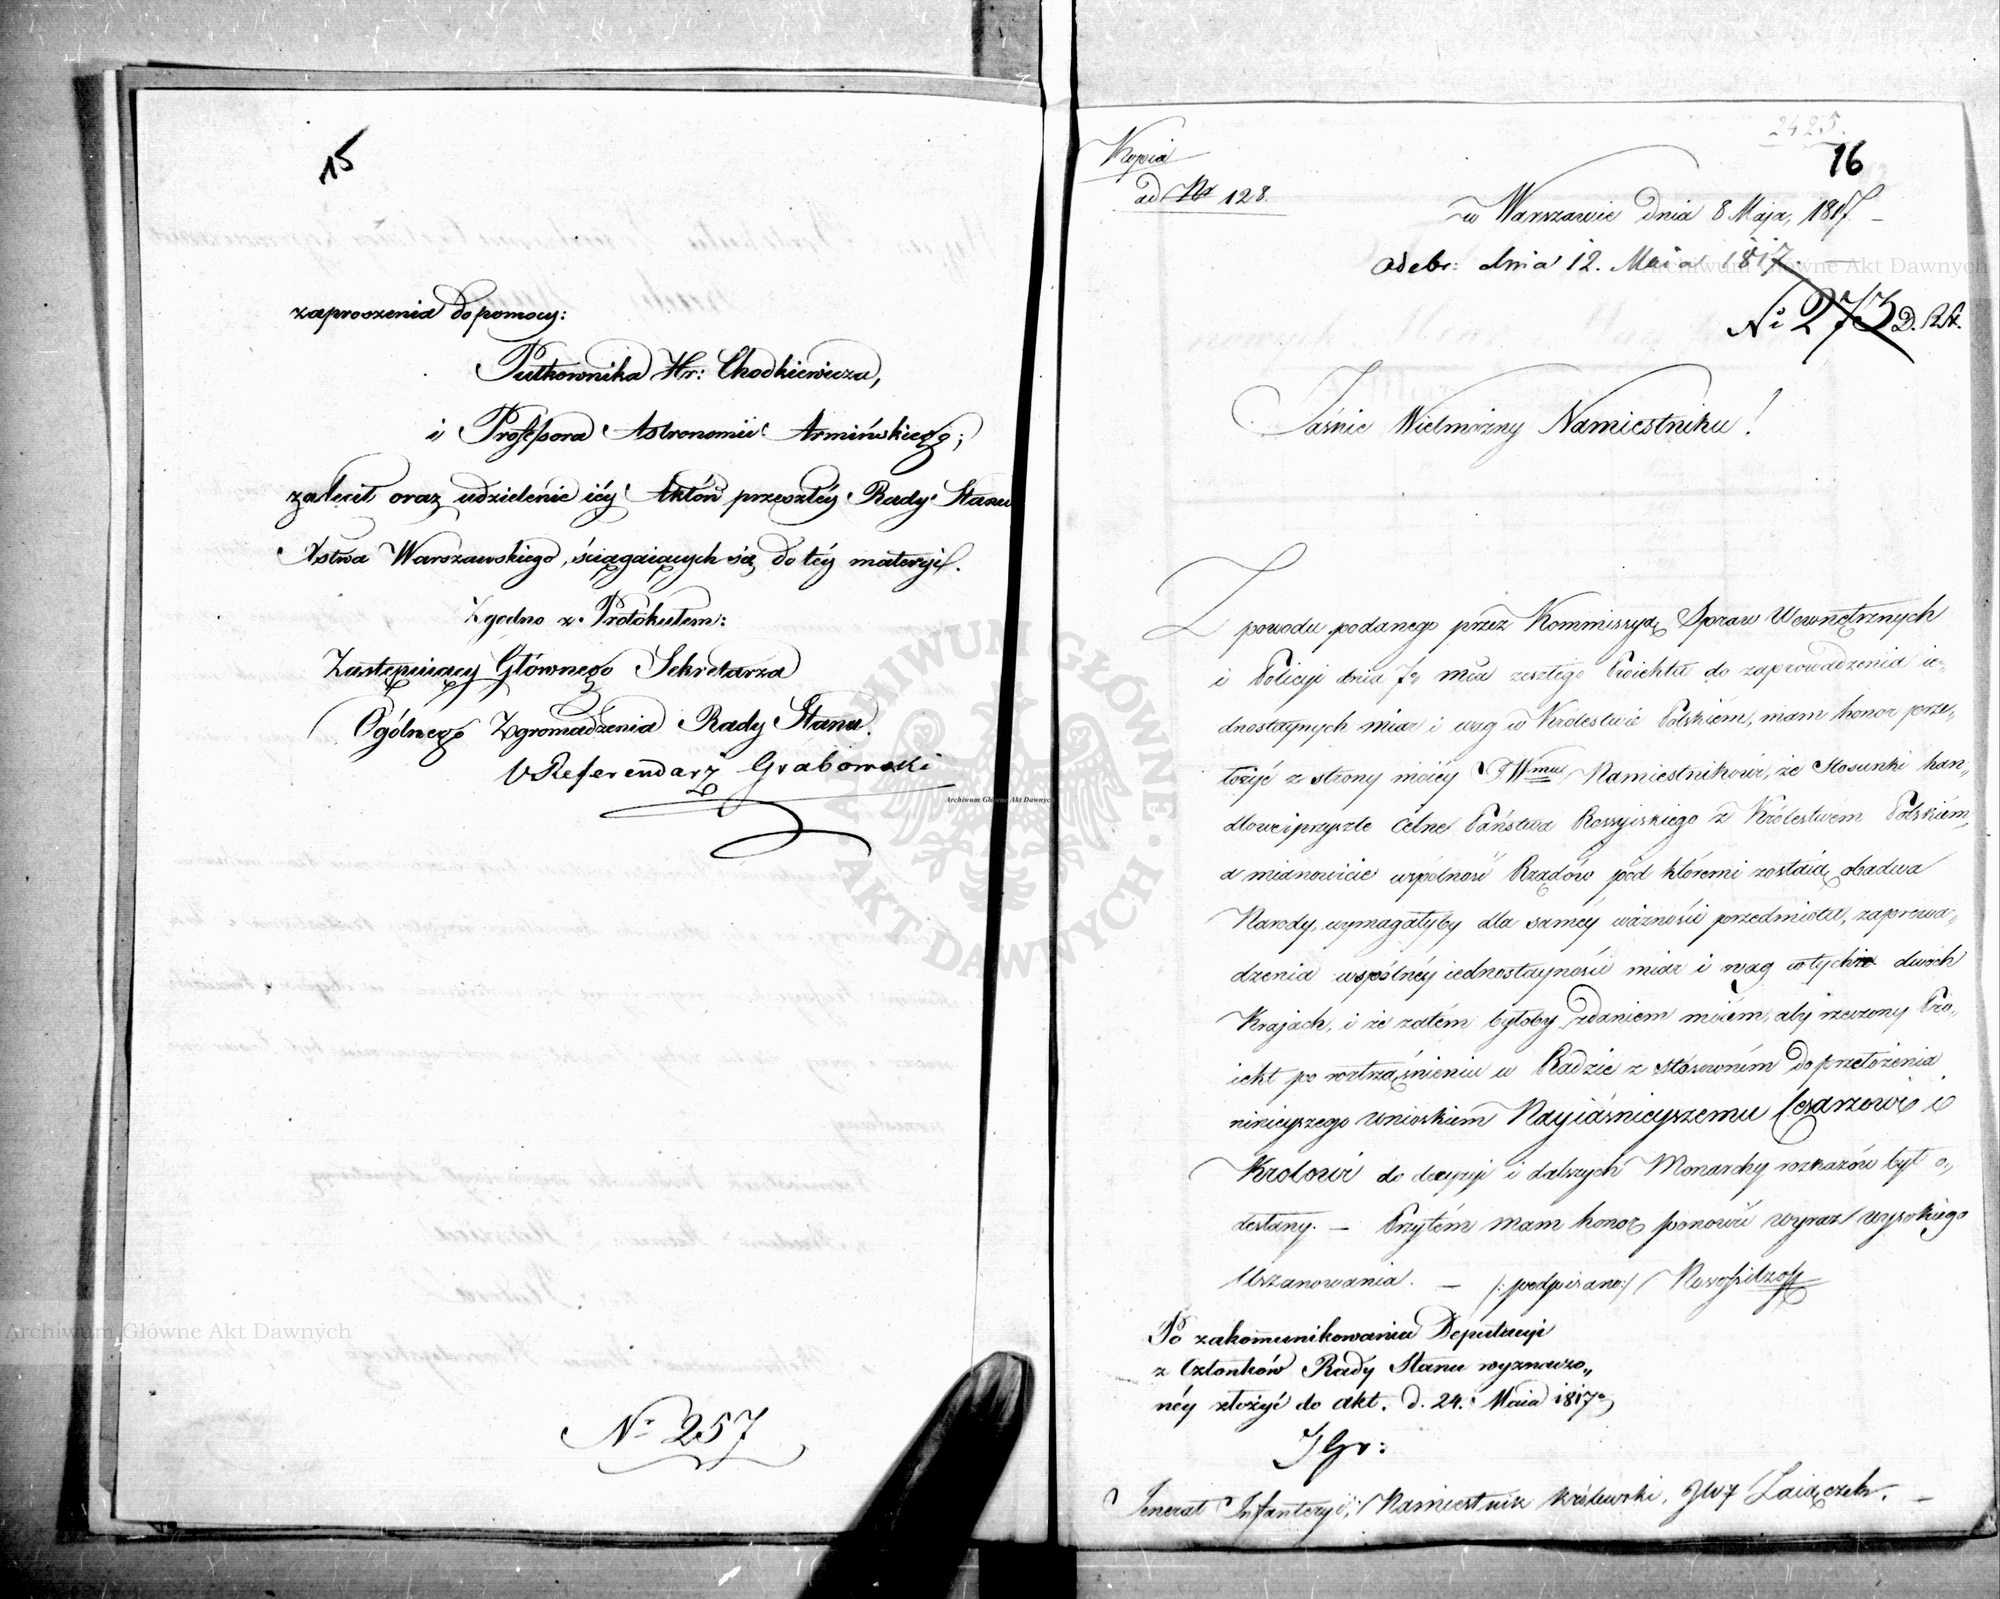 15
zaproszenia do pomocy:
Pułkownika Hr: Chodkiewicza,
i Professora Astronomii Armińskiego;
zalecił oraz udzielenie iéy Aktów przeszłéy Rady Stanu
Xstwa Warszawskiego, ściągaiących się do téy materyi.
Zgodno z Protokułem:
Zastępuiący Głównego Sekretarza
Ogólnego Zgromadzenia Rady Stanu.
Referendarz Grabowski
No 257
2425.
16
Kopia
ad Nr 128.
w Warszawie dnia 8 Maja, 1817. –
Odebr: dnia 12. Maia 1817. –
No 273 D. R. St.
Jaśnie Wielmożny Namiestniku!
Z powodu podanego przez Kommissyą Spraw Wewnętrznych
i Policyi dnia 7o mca zeszłego Proiektu do zaprowadzenia ie„
dnostaynych miar i wag w Królestwie Polskiém, mam honor prze„
łożyć z strony moiéy JWmu Namiestnikowi, że stosunki han„
dlowe i przyszłe celne Państwa Rossyiskiego z Królestwem Polskiém,
a mianowicie wspólność Rządów pod któremi zostaią obadwa
Narody, wymagałyby dla saméy ważności przedmiotu, zaprowa„
dzenia wspólnéy iednostayności miar i wag w tychże dwóch
Krajach, i że zatém byłoby zdaniem moiém, aby rzeczony Pro„
iekt po roztrząśnieniu w Radzie z stosowném do przełożenia
ninieyszego wnioskiem Nayiaśnieyszemu Cesarzowi i
Królowi do decyzyi i dalszych Monarchy rozkazów był o„
desłany. – Przytém mam honor ponowić wyraz wysokiego
Uszanowania. – /:podpisano:/ Nowossilzoff
Po zakomunikowaniu Deputacyi
z Członków Rady Stanu wyznaczo„
néy złożyć do akt. d. 24. Maia 1817o
J Gr:
Jenerał Infanteryi, Namiestnik Królewski, JW Zaiączek. –
Archiwum Główne Akt Dawnych
Archiwum Główne Akt Dawnych
Archiwum Główne Akt Dawnych
ARCHIWUM GŁÓWNE · AKT DAWNYCH ·